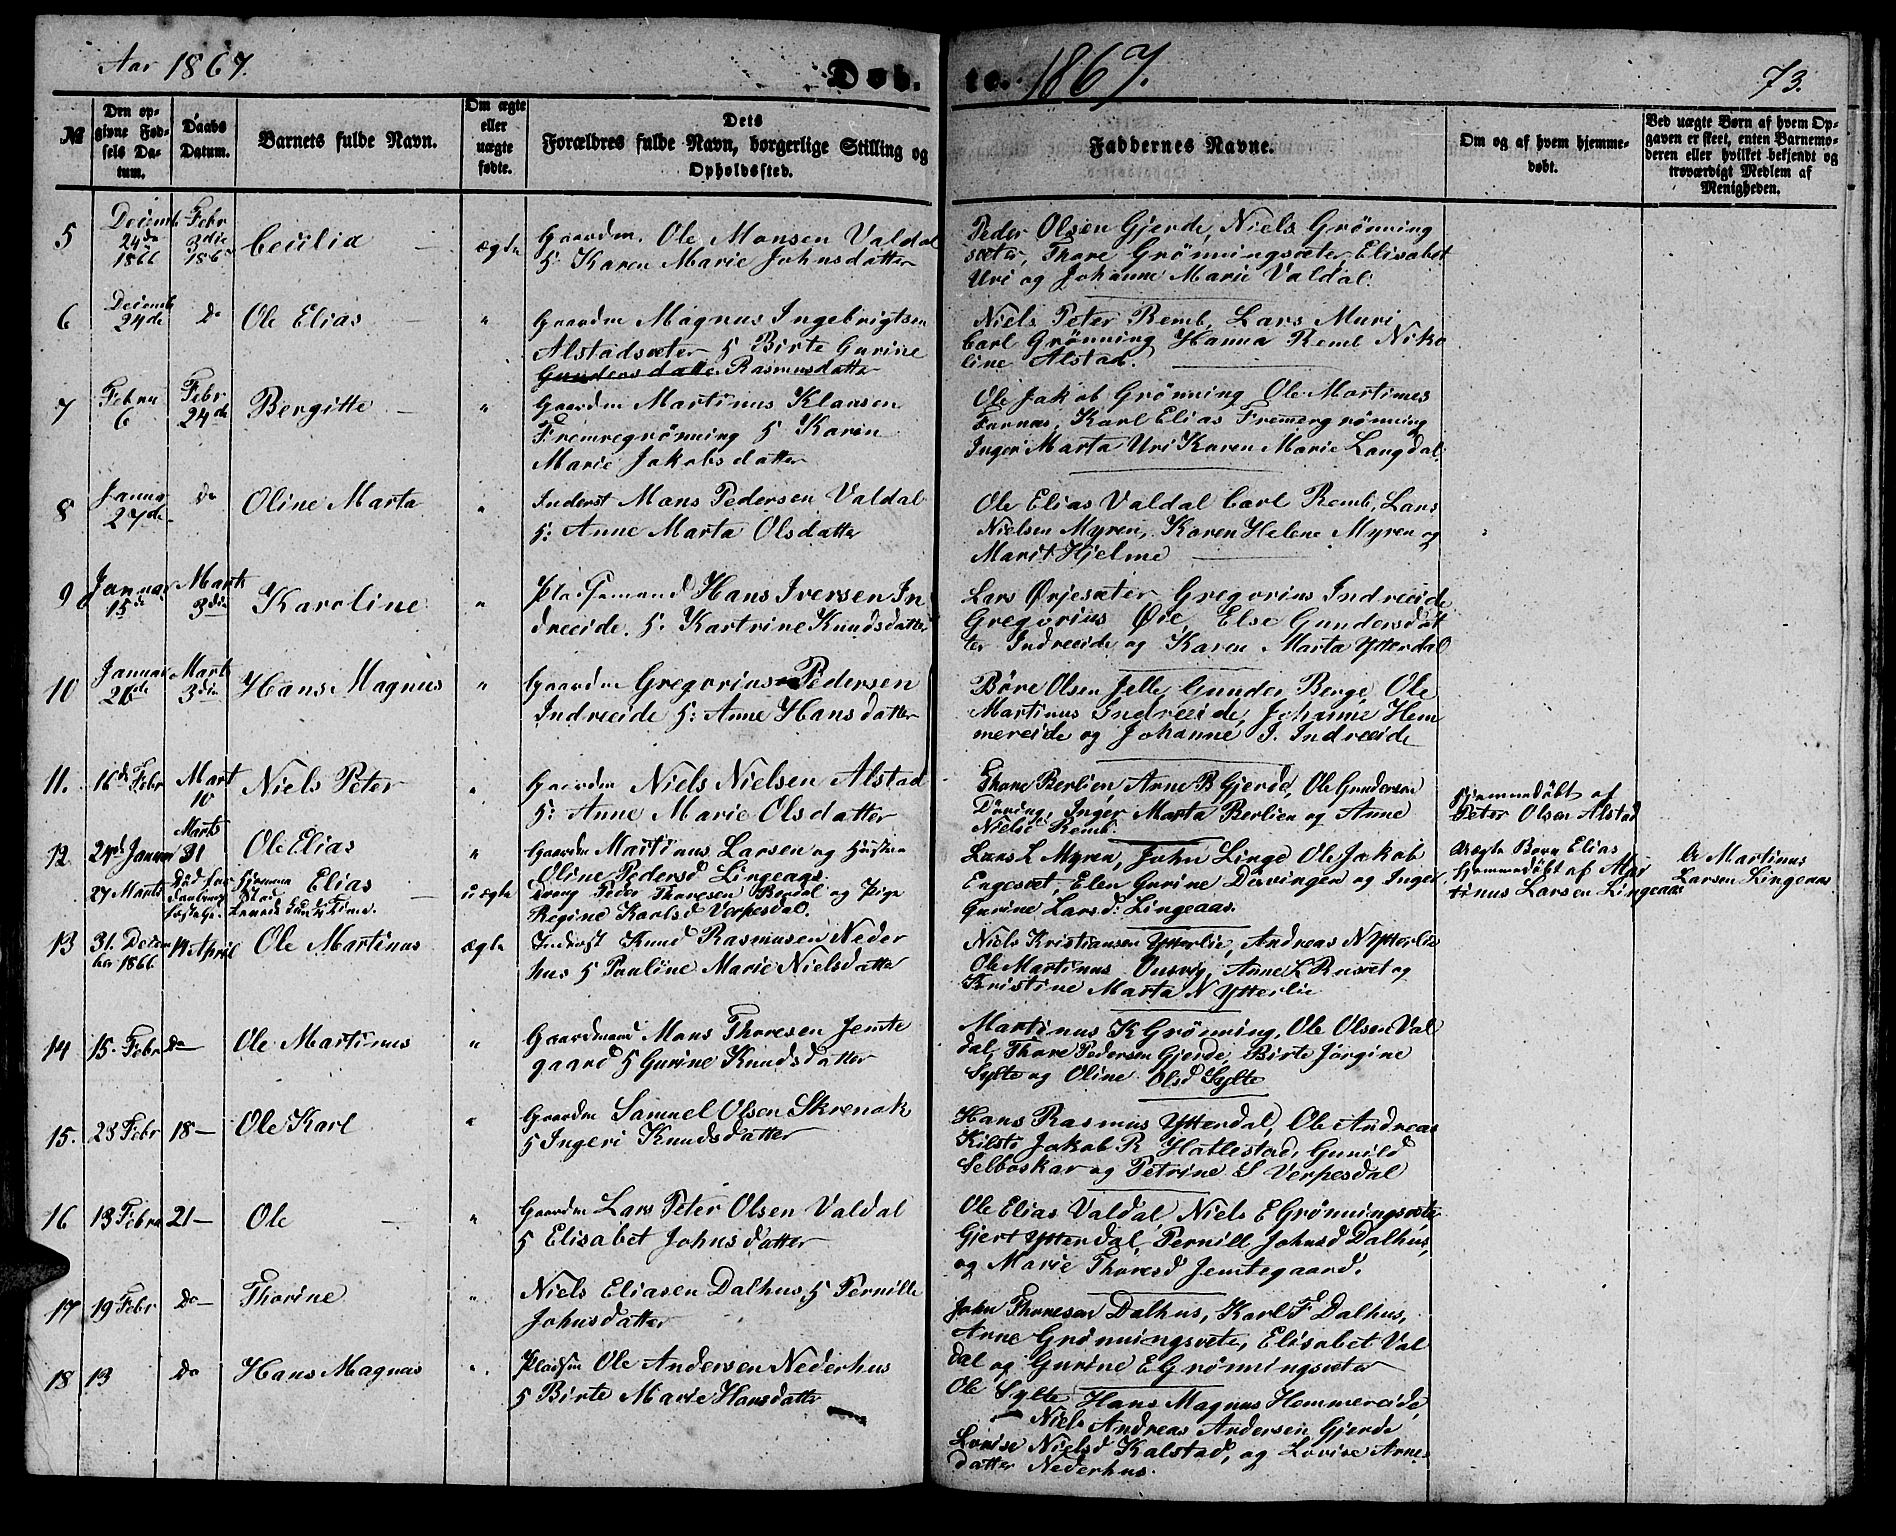 Aar 1867.
Døb-
te. 1867.
73.
№
Den op-
givne Fød-
sels Da-
tum.
Daabs
Datum.
Barnets fulde Navn.
Om ægte
eller
uægte
fødte.
Dets
Forældres fulde Navn, borgerlige Stilling og
Opholdssted.
Faddernes Navne.
Om og af hvem hjemme-
døbt.
Ved uægte Børn af hvem Op-
gaven er skeet, enten Barnemo-
deren eller hvilket bekjendt og
troværdigt Medlem af
Menigheden.
5
Decemb
24de
1866
Febr
3die
1867
Cecilia
ægte
Gaardm. Ole Monsen Valdal
& Karen Marie Johnsdatter
Peder Olsen Gjerde, Niels Grönning
sæter, Thore Grönningsæter, Elisabet
Uri og Johanne Marie Valdal.
6
Decemb
24de
Do
Ole Elias
"
Gaardm Magnus Ingebrigtsen
Alstadsæter & Birte Gurine
Gundersdatter Rasmusdatter
Niels Peter Remb, Lars Muri
Carl Grönning Hanna Remb Niko
line Alstad.
7
Febru
6
Febr
24de
Bergitte
"
Gaardm Martinus Klausen
Fremregrönning & Karen
Marie Jakobsdatter
Ole Jakob Grönning Ole Martinus
Furnæs, Karl Elias Fremregrönning
Inger Marta Uri Karen Marie Langdal.
8
Janua
27de
Do
Oline Marta
"
Inderst Mons Pedersen Valdal
&: Anne Marta Olsdatter
Ole Elias Valdal Carl Remb, Lars
Nielsen Myren, Karen Helene Myren og
Marit Hjelme
9
Januar
15de
Marts
3die
Karoline
"
Pladsemand Hans Iversen In
dreeide. &: Kartrine Knudsdatter
Lars Ørjesæter Gregorius Indreeide
Gregorius Øie Else Gundersdat
ter Indreeide og Karen Marta Ytterdal
10
Januar
26de
Marts
3die
Hans Magnus
"
Gaardm Gregorius Pedersen
Indreeide &: Anne Hansdatter
Böre Olsen Jelle, Gunder Berge, Ole
Martinus Indreeide, Johanne Hem
mereide og Johanne I. Indreeide
11.
16de Febr
Mart
10
Niels Peter
"
Gaardm Niels Nielsen Alstad
&: Anne Marie Olsdatter
Thore Berlien, Anne B Gjerde, Ole Gundersen
Döving, Inger Marta Berlien og Anne
Nielsd Remb.
Hjemmedøbt af
Peter Olsen Alstad
12
24de Januar
Marts
31
Ole Elias
"
Gaardm Martinus Larsen og Hustru
Oline Pedersd Lingeaas.
Lars L Myren, John Linge Ole Jakob
Engeset, Elen Gurine Dövingen og Inger
Gurine Larsd: Lingeaas.
27 Marts
Død før
Elias
uægte
Dreng Peder Thoresen Berdal og Pige
Regine Karlsd Verpesdal.
Uægte Barn Elias
hjemmedøbt af Mar
tinus Larsen Lingeaas
Martinus
Larsen Lingeaas
13
31. Decem
ber 1866
14 April
Ole Martinus
ægte
Inderst Knud Rasmusen Neder
hus & Pauline Marie Nielsdatter
Niels Kristiansen Ytterlie, Andreas N Ytterlie
Ole Martinus Ousvig, Anne L Ruset og
Kristine Marta N Ytterlie
14
15. Febr
Do
Ole Martinus
"
Gaardmand Mons Thoresen Jemte
gaard & Gurine Knudsdatter
Martinus K Grönning, Ole Olsen Val
dal, Thore Pedersen Gjerde, Birte Jörgine
Sylte og Oline Olsd Sylte
15.
28 Febr
18 —
Ole Karl
"
Gaardm Samuel Olsen Skrenak
& Ingeri Knudsdatter
Hans Rasmus Ytterdal, Ole Andreas
Kilsti Jakob R Hatlestad, Gunild
Selboskar og Petrine S Verpesdal
16
13 Febru
21 —
Ole
"
Gaardm Lars Peter Olsen Valdal
& Elisabet Johnsdatter
Ole Elias Valdal, Niels E Grönningsæter
Gjert Ytterdal, Pernill Johnsd Dalhus,
og Marie Thoresd Jemtegaard.
17
19 Febr
Do —
Thorine
"
Niels Eliasen Dalhus, & Pernille
Johnsdatter
John Thoresen Dalhus, Karl F Dalhus,
Anne Grönningsæte, Elisabet Val
dal og Gurine E Grönningsæter
18
13
Do
Hans Magnus
"
Pladsm Ole Andersen Nederhus
& Birte Marie Hansdatter
Ole Sylte, Hans Magnus Hemmereide,
— Niels Andreas Andersen Gjerde
Lovise Nielsd Kalstad, og Lovise Arnes
datter Nederhus.